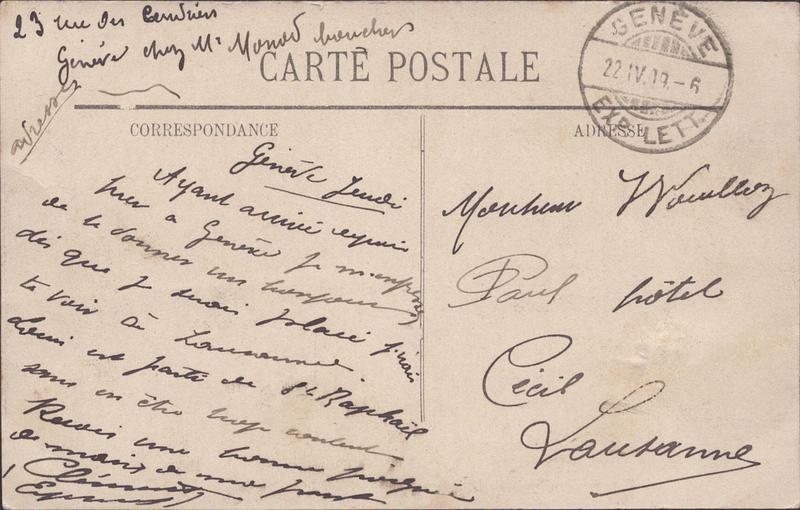 23 rue des
Genève chez Mr Monod boucher
adresse
CARTE POSTALE
GENÈVE
22.IV.09.-6
EXP. LETT.
CORRESPONDANCE
ADRESSE
Genève Jeudi
Ayant arrivé depuis
hier à Genève je m'empresse
de te donner un bonjour
dès que je serai placé j'irai
te voir à Lausanne
Louis est parti de St Raphaël
sans en être trop content
Reçois une bonne poignée
de mains de
Clément
Monsieur
Paul hôtel
Cécil
Lausanne